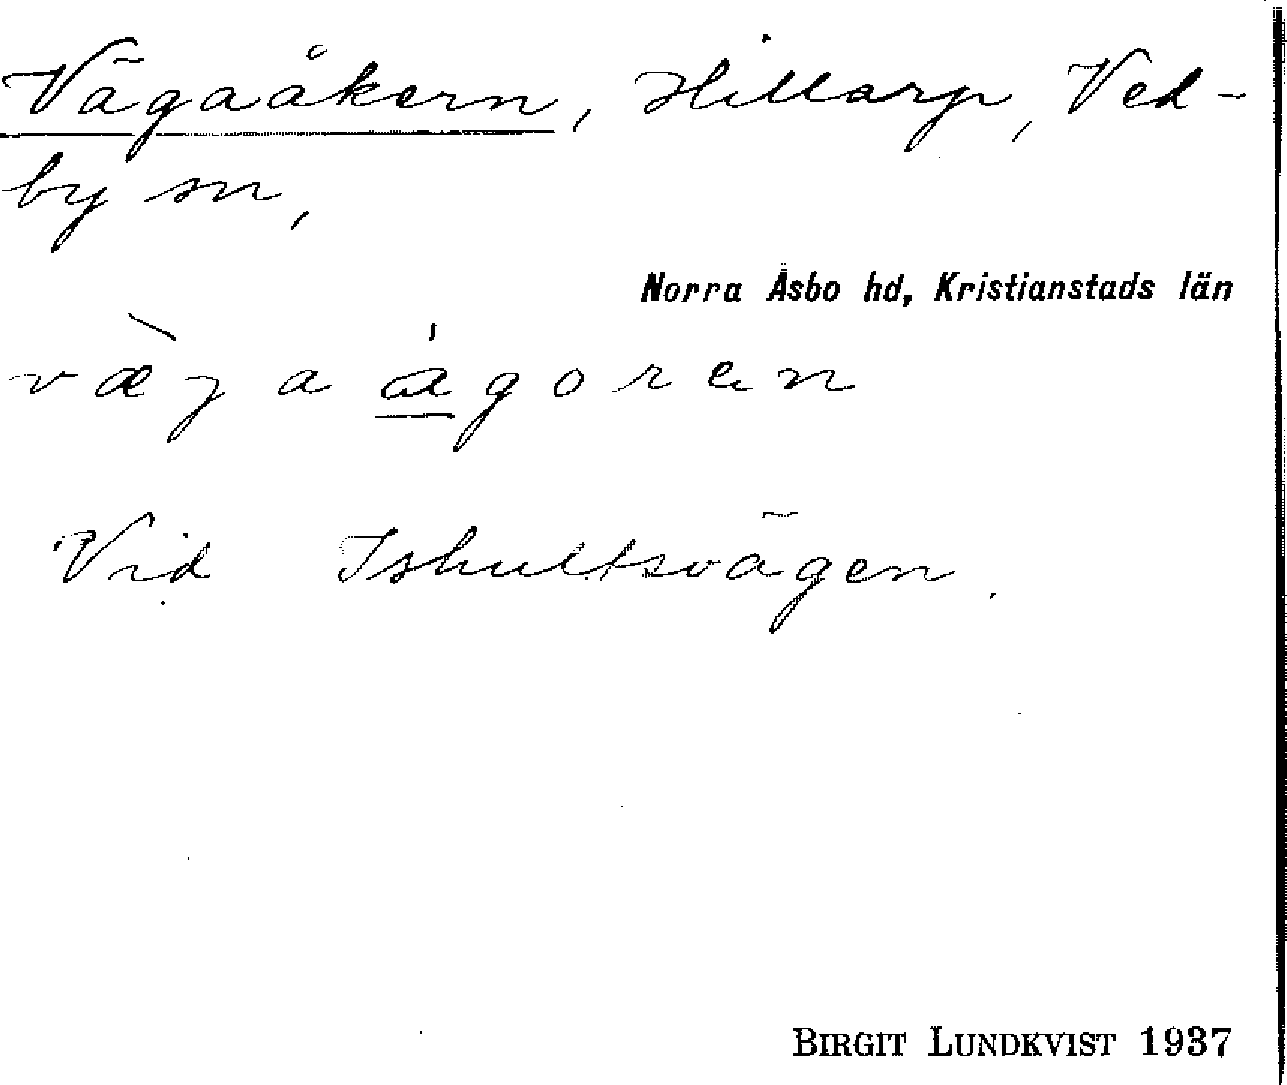 Vägaåkern, Hillarp, Ved-
by sn,
Norra Åsbo hd, Kristianstads län
væ̀ga ǻ̲goren
Vid Ishultsvägen.
BIRGIT LUNDKVIST 1937